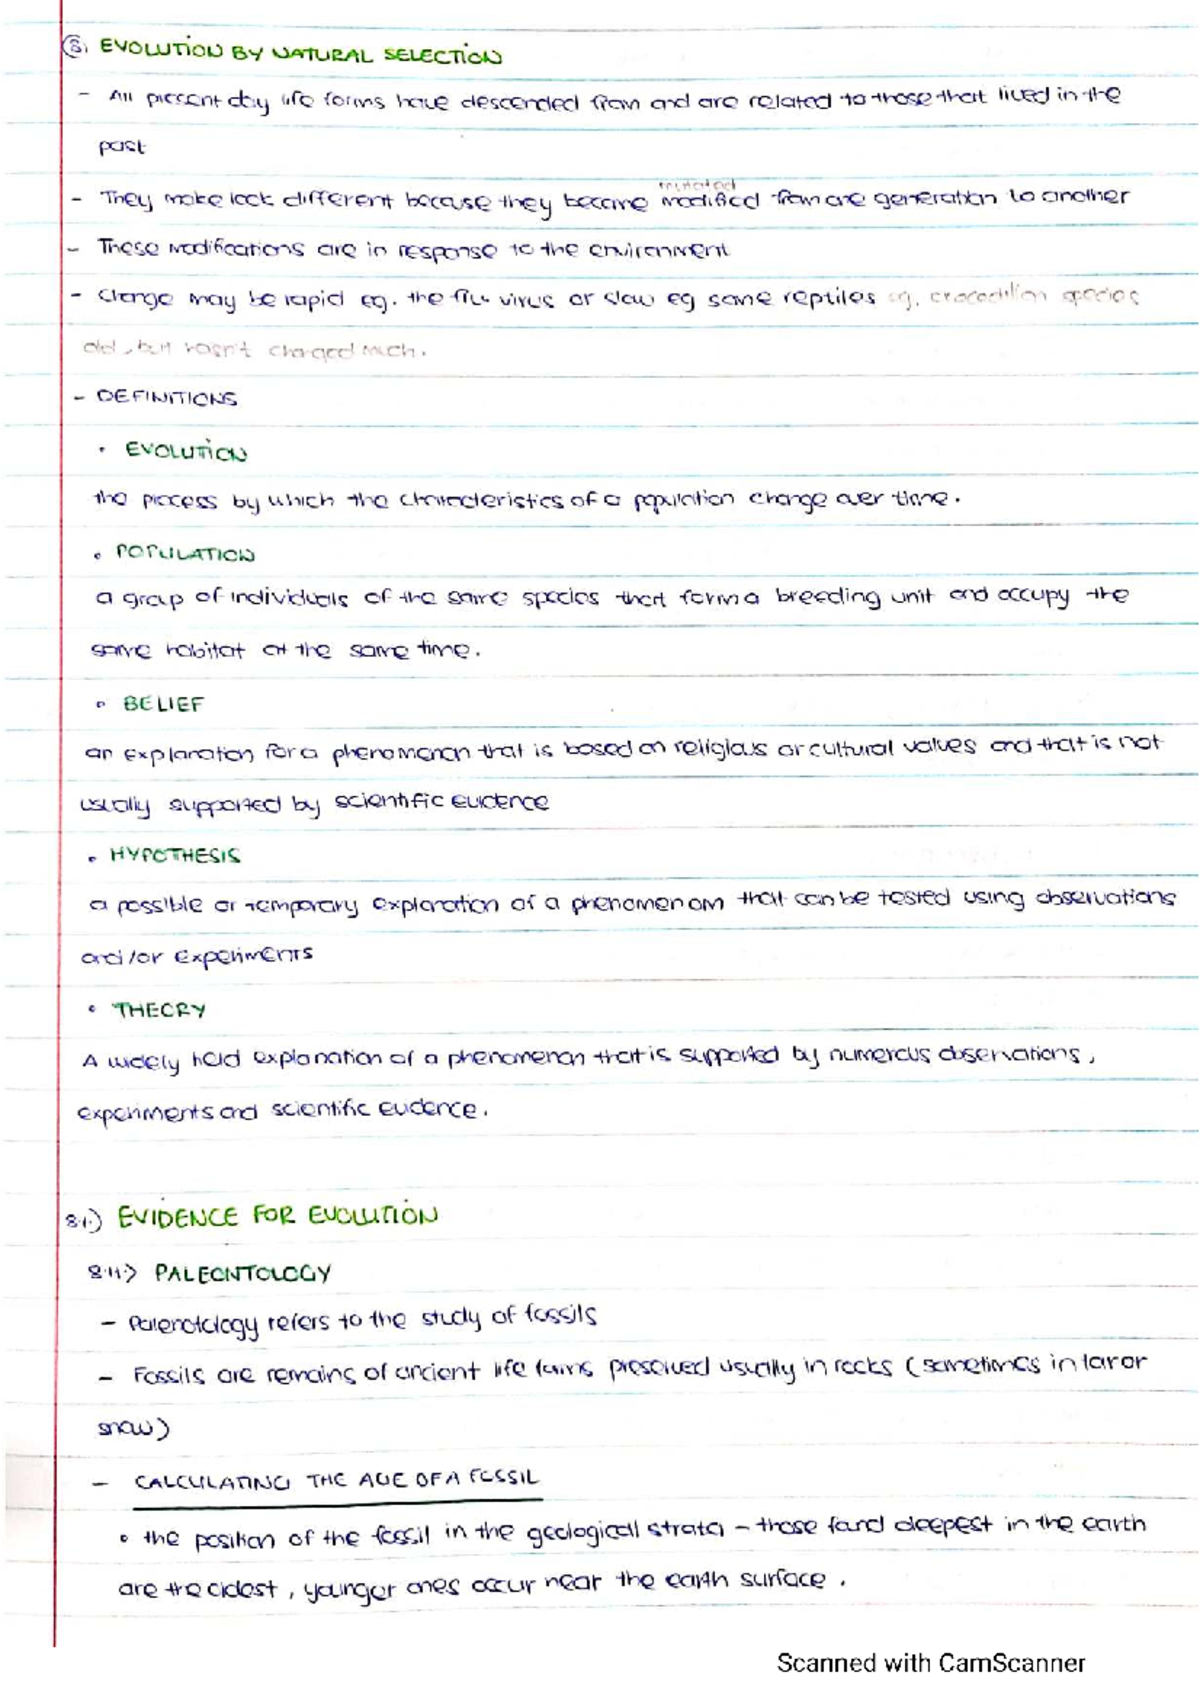 8. EVOLUTION BY NATURAL SELECTION
- All present day life forms have descended from and are related to those that lived in the
past
mutated
- They make look different because they become modified from one generation to another
- These modifications are in response to the environment
- Change may be rapid eg. the flu virus or slow eg some reptiles eg. crocodilian species
old, but hasn't changed much.
- DEFINITIONS
• EVOLUTION
the process by which the characteristics of a population change over time.
• POPULATION
a group of individuals of the same species that form a breeding unit and occupy the
same habitat at the same time.
• BELIEF
an explanation for a phenomenon that is based on religious or cultural values and that is not
usually supported by scientific evidence
• HYPOTHESIS
a possible or temporary explanation of a phenomenom that can be tested using observations
and/or experiments
• THEORY
A widely held explanation of a phenomenon that is supported by numerous observations,
experiments and scientific evidence.
8.1.) EVIDENCE FOR EVOLUTION
8.1.1) PALEONTOLOGY
- Palenotology refers to the study of fossils
- Fossils are remains of ancient life forms preserved usually in rocks (sometimes in lar or
snow)
- CALCULATING THE AGE OF A FOSSIL
• the position of the fossil in the geological strata - those found deepest in the earth
are the oldest, younger ones occur near the earth surface.
Scanned with CamScanner